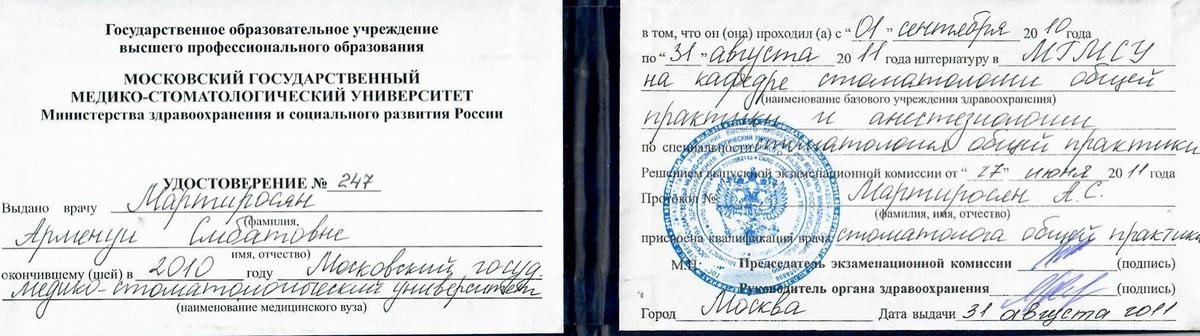 Государственное образовательное учреждение
высшего профессионального образования
МОСКОВСКИЙ ГОСУДАРСТВЕННЫЙ
МЕДИКО-СТОМАТОЛОГИЧЕСКИЙ УНИВЕРСИТЕТ
Министерства здравоохранения и социального развития России
УДОСТОВЕРЕНИЕ № 247
Выдано врачу Мартиросян
(фамилия,
Арменуи Смбатовне
имя, отчество)
окончившему (шей) в 2010 году Московский госуд
медико-стоматологический университет
(наименование медицинского вуза)
в том, что он (она) проходил (а) с “01” сентября 2010 года
по “31” августа 2011 года интернатуру в МГМСУ
на кафедре стоматологии общей
(наименование базового учреждения здравоохранения)
практики и анестезиологии
по специальности стоматология общей практики
Решением выпускной экзаменационной комиссии от “27” июня 2011 года
Протокол № Мартиросян А.С.
(фамилия, имя, отчество)
присвоена квалификация врача стоматолога общей практики
М.П. Председатель экзаменационной комиссии (подпись)
Руководитель органа здравоохранения (подпись)
Город Москва Дата выдачи 31 августа 2011